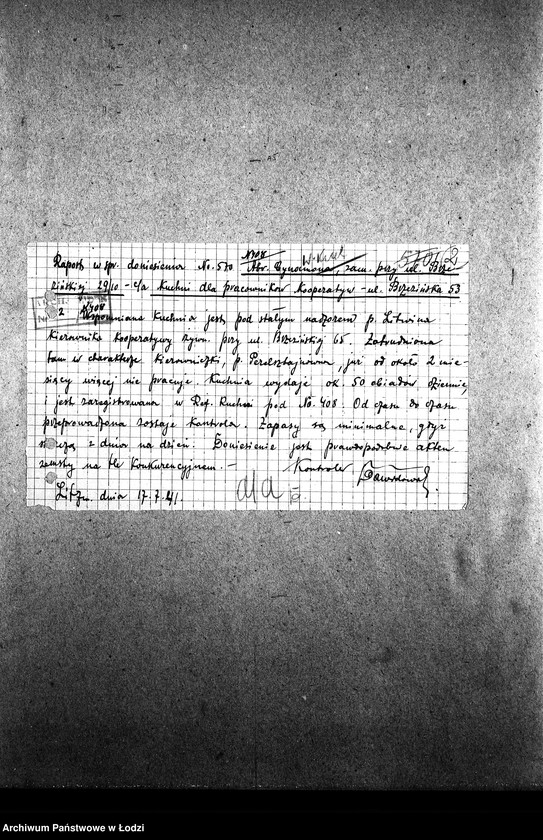 N408
570/2
Raport w spr. doniesienia No. 570 Abr. zam. przy ul. Brze-
zińskiej 29/10 - c/a Kuchni dla pracowników Kooperatyw - ul. Brzezińska 53
2 K/408
Wspomniana Kuchnia jest pod stałym nadzorem p. Litwina
Kierownika Kooperatywy żywn. przy ul. Brzezińskiej 65. Zatrudniona
tam w charakterze Kierowniczki, p. już od około 2 mie-
sięcy więcej nie pracuje. Kuchnia wydaje ok. 50 obiadów dziennie,
i jest zarejestrowana w Ref. Kuchni pod No. 408. Od czasu do czasu
przeprowadzana zostaje Kontrola. Zapasy są minimalne, gdyż
z dnia na dzień. Doniesienie jest prawdopodobnie aktem
zemsty na tle Konkurencyjnem. -
Kontroler
Litzm. dnia 17.7.41.
a/a
Archiwum Państwowe w Łodzi